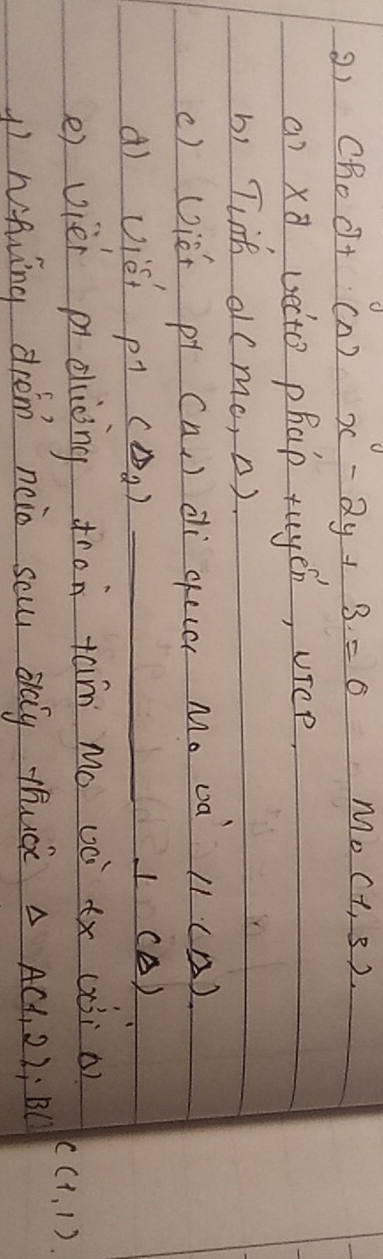 2) Cho đt (Δ) x - 2y + 3 = 0 M₀(1,3).
a) XĐ véctơ pháp tuyến, VTCP.
b) Tính d(M₀, Δ).
c) Viết pt (Δ₁) đi qua M₀ và // (Δ).
d) Viết pt (Δ₂) ———— ⊥ (Δ)
e) Viết pt đường tròn tâm M₀ và tx với Δ.
f) Những điểm nào sau đây thuộc Δ A(1,2); B(
C(1,1).